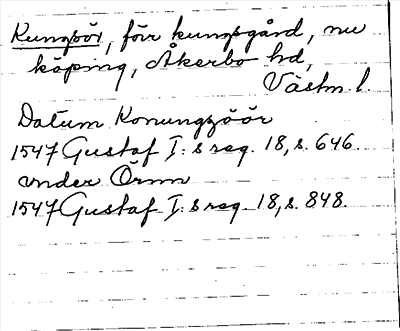 Kungsör, förr kungsgård, nu
köping, Åkerbo hd,
Västm. l.
Datum Konungzöör
1547 Gustaf I:s reg. 18, s. 646.
under Örnn
1547 Gustaf I:s reg. 18, s. 848.